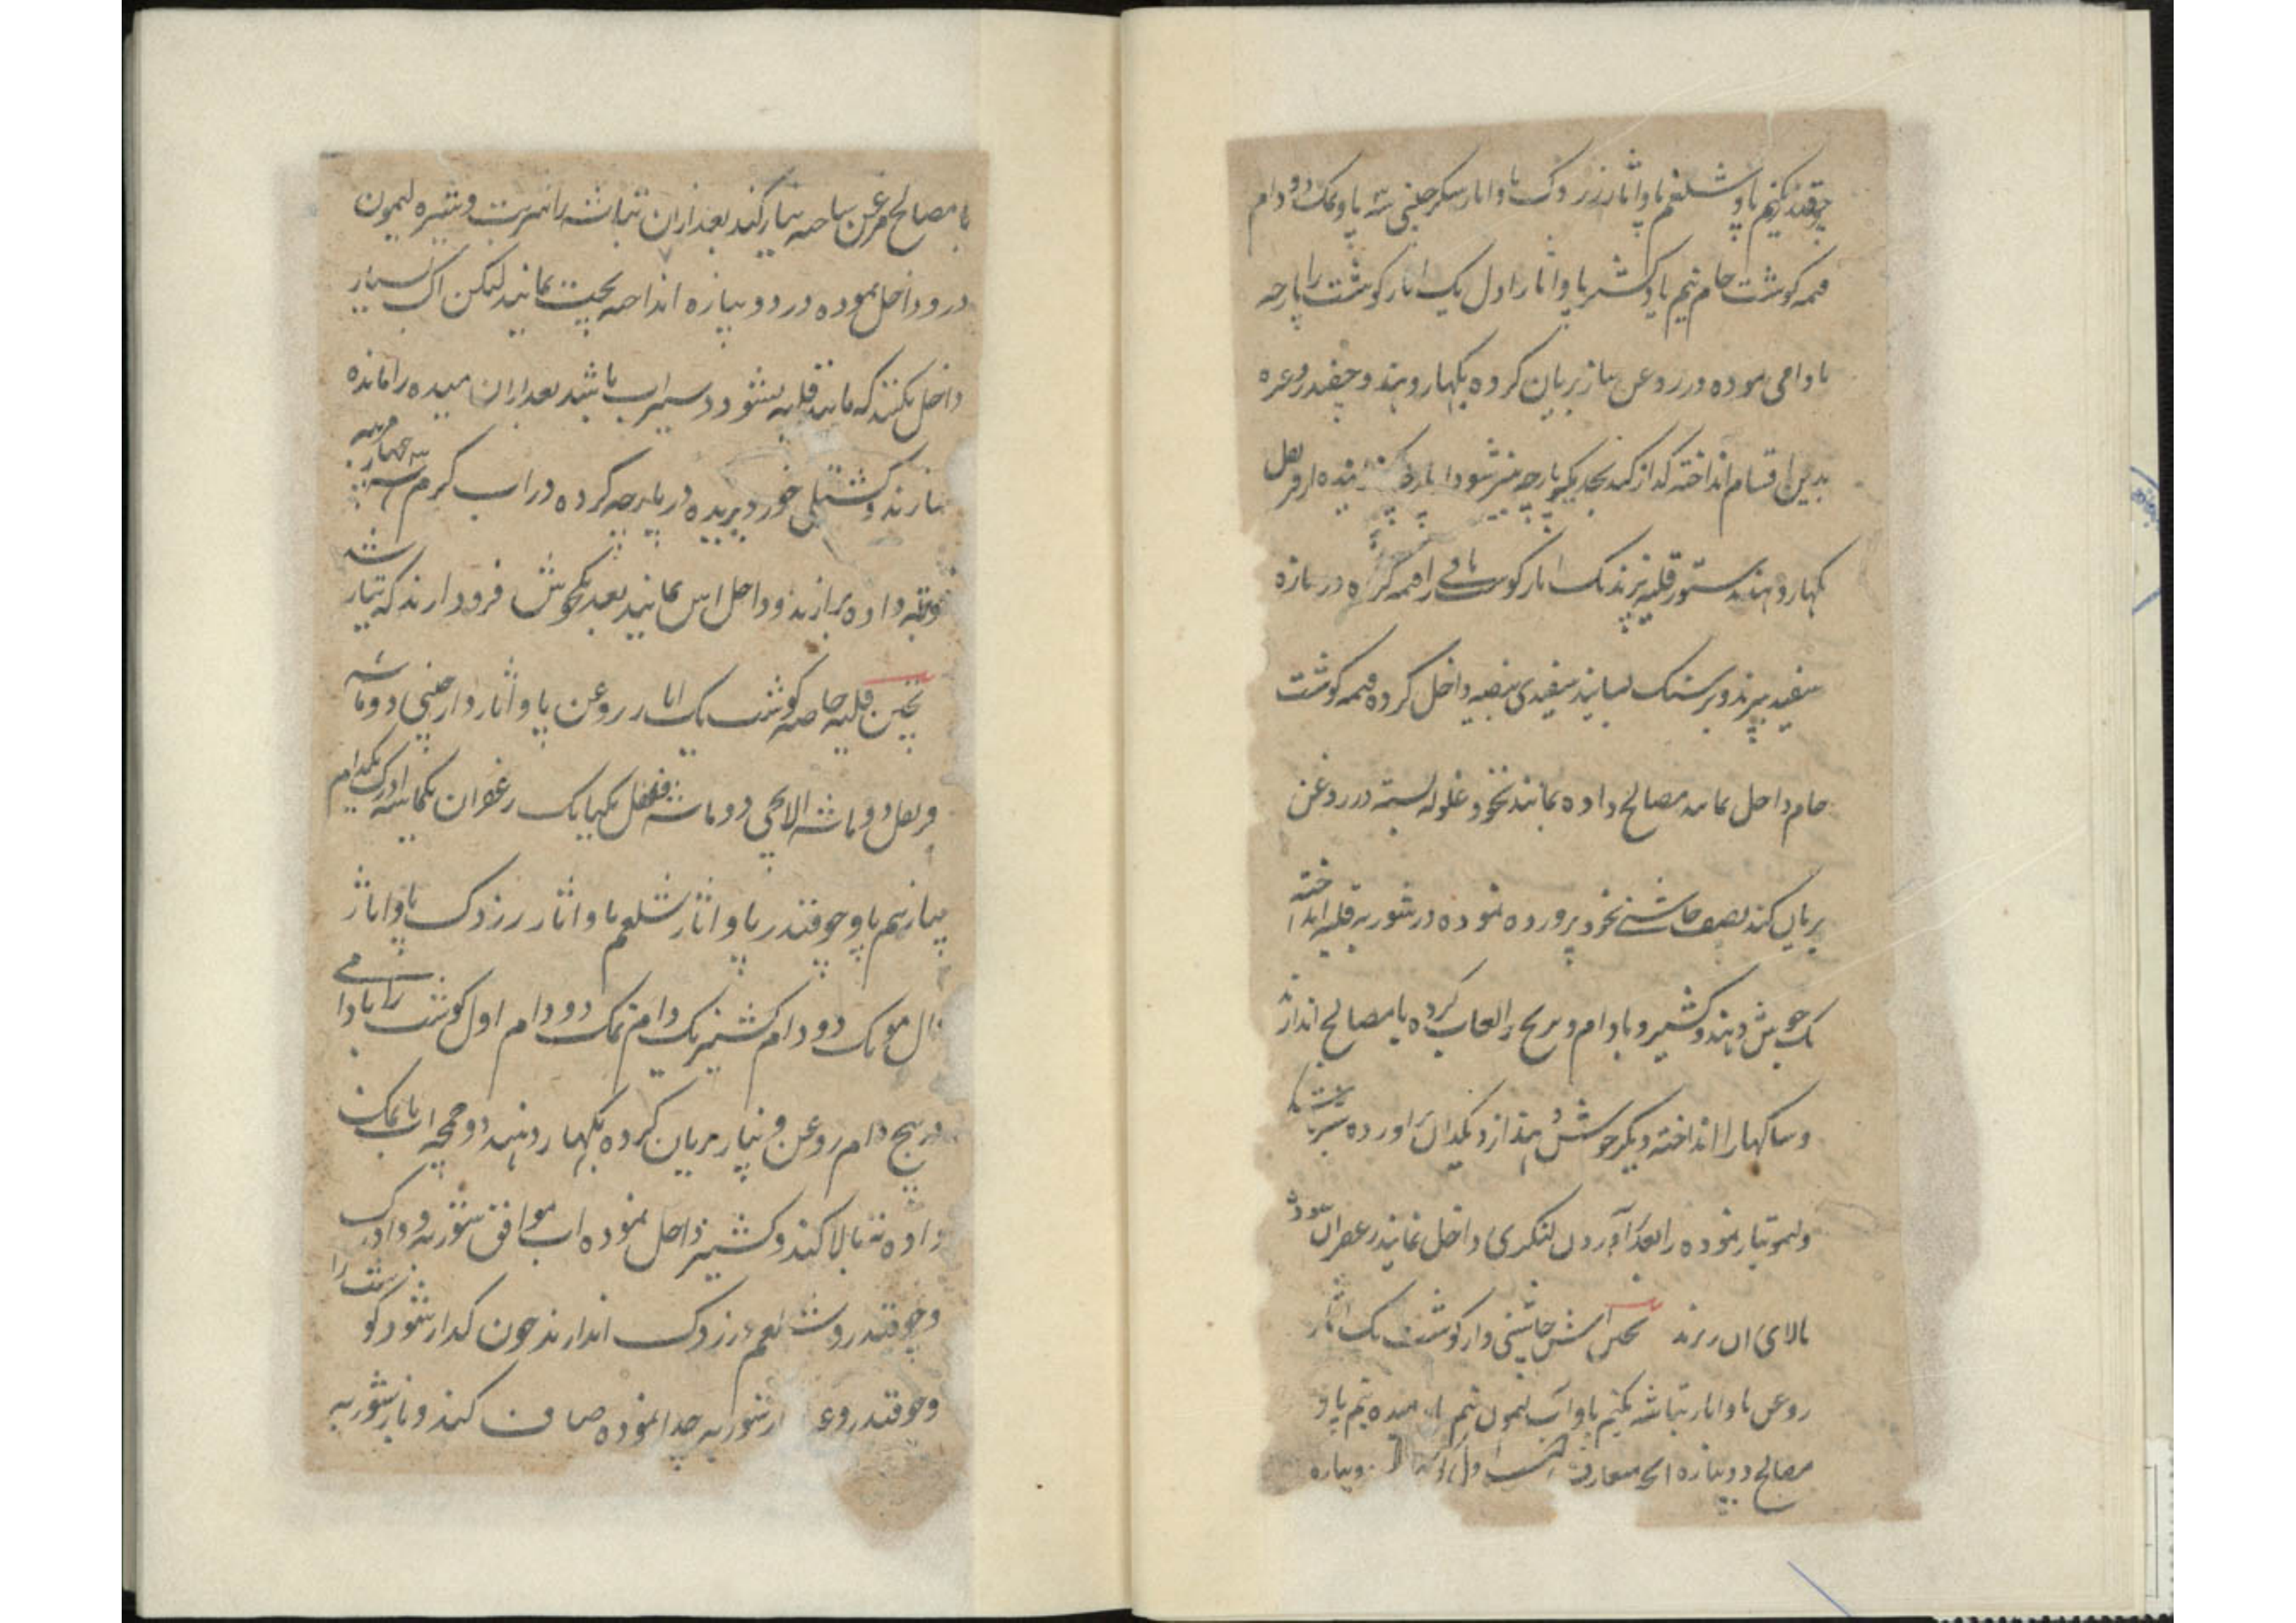 چقندر نیم پاو شلغم پاو اثار زردک پاو اثار سکر چینی سه پاو نمک دو دام
قیمه گوشت خام نیم پاو کشنیز پاو اثار اول یک اثار گوشت را پارچه
بادامی نموده در روغن پیاز بریان کرده بکهار دهند و چقندر وغیره
بدین اقسام انداخته گداز کنند بعد یکپارچه میز شود از قرنفل
بکهار دهند بدستور قلیه پزند یک اثار گوشت باقی را قیمه کرده در پیازه
سفید بپزند و بر سنگ بسایند سفیدی بیضه داخل کرده قیمه گوشت
خام داخل نمایند مصالح داده بمانند نخود غلوله بسته در روغن
بریان کنند نصف چاشنی نخود پرورده نموده در شوربه قلیه انداخته
یک جوش دهند و کشنیز و بادام و برنج را لعاب کرده با مصالح اندازند
و ساکها را انداخته دیگر جوش دهند از دیکدان آورده
و لیمو تیار نموده را بعد آوردن لنگری داخل نمایند زعفران سوده
بالای آن ریزند پختن آش چاشنی دار گوشت یک اثار
روغن پاو اثار بتاشه نیم پاو آب لیمون نیم پاو میده نیم پاو
مصالح دوپیازه انچه متعارف است اول دوپیازه
با مصالح روغن ساخته تیار کنند بعد ازان بتاشه را شربت و شیره لیمون
درو داخل نموده در دوپیازه انداخته پخت نمایند لیکن آب بسیار
داخل نکنند که مانند قلیه بشود و سیراب باشد بعد ازان میده را مانده
سازند و کشتلی خورد بریده در پارچه کرده در آب گرم سه چهار مرتبه
غوطه داده برآرند و داخل آش نمایند بعد یکجوش فرود آرند که تیار شد
پختن قلیه خاصه گوشت یک اثار روغن پاو اثار دارچینی دو ماشه
قرنفل دو ماشه الایچی دو ماشه فلفل یکپاک زعفران یکماشه ادرک یکدام
پیاز نیم پاو چوقندر پاو اثار شلغم پاو اثار زردک پاو اثار
دال مونک دو دام کشنیز یک دام نمک دو دام اول گوشت را بادامی
در پنج دام روغن و پیاز بریان کرده بکهار دهند دو چمچه آب با نمک
داده ته بالا کنند و کشنیز داخل نموده آب موافق شوربه و ادرک
و چوقندر و شلغم و زردک اندازند چون گداز شود گوشت را
و چوقندر وغیره از شوربه جدا نموده صاف کنند و باز شوربه